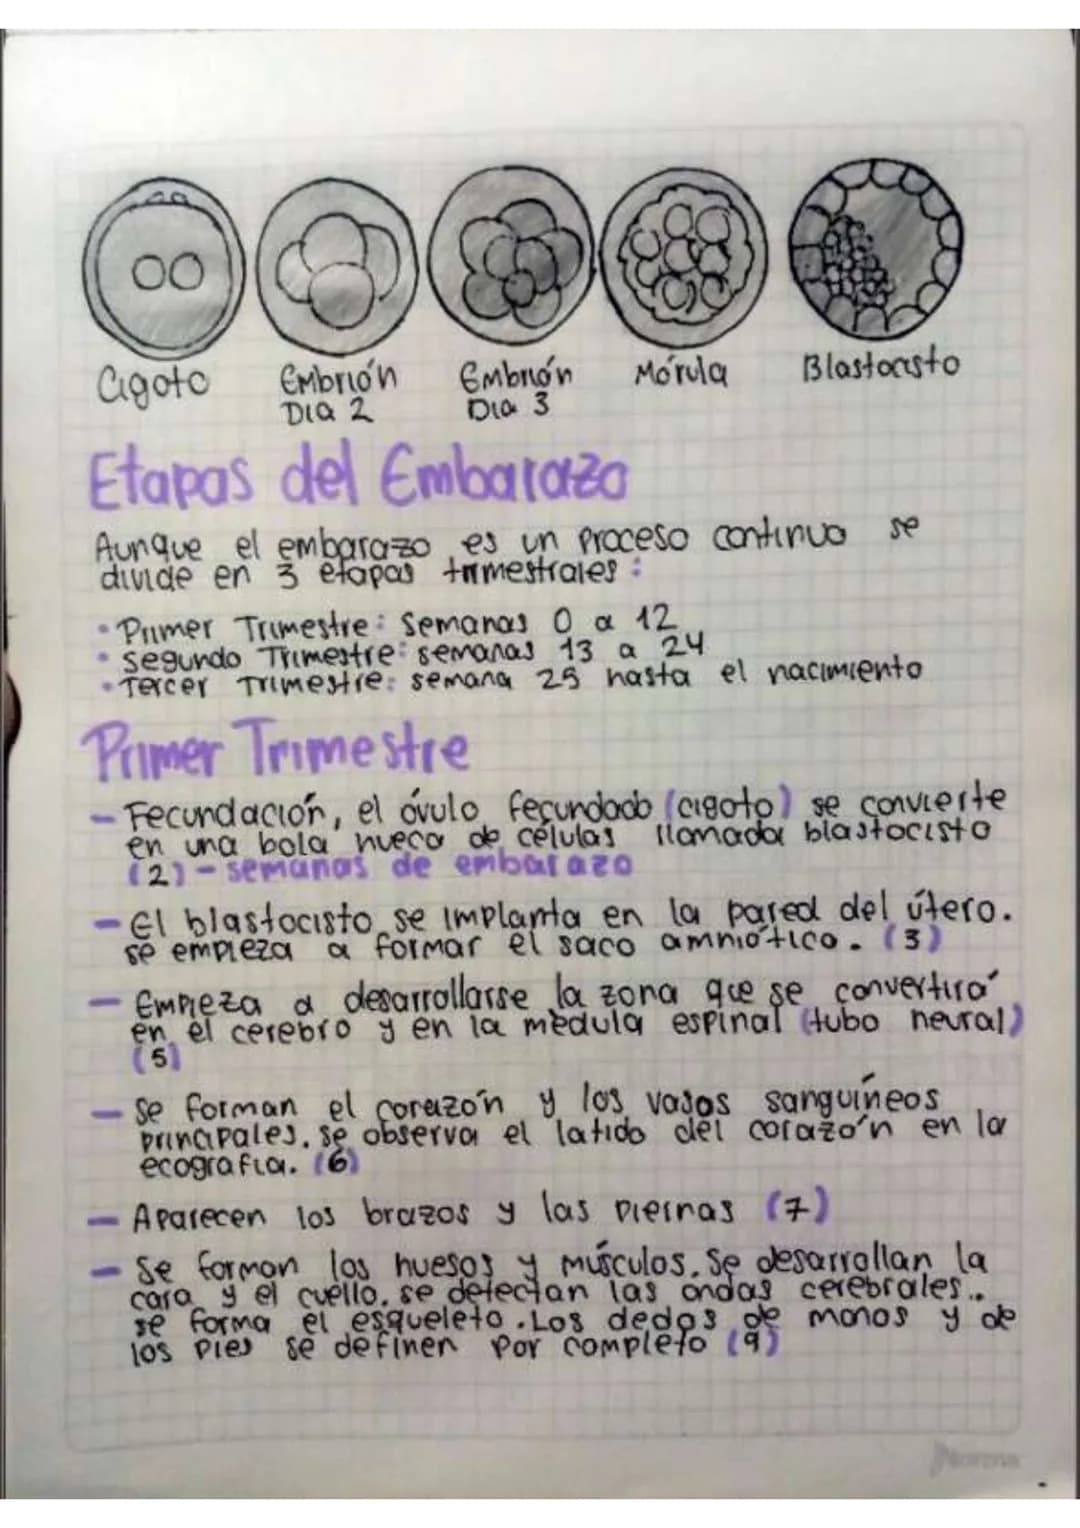 Cigoto Embrión Embrión Mórula Blastocisto
Día 2 Día 3
Etapas del Embarazo
Aunque el embarazo es un proceso continuo se
divide en 3 etapas trimestrales:
• Primer Trimestre: Semanas 0 a 12
• Segundo Trimestre: semanas 13 a 24
• Tercer Trimestre: semana 25 hasta el nacimiento
Primer Trimestre
- Fecundación, el óvulo fecundado (cigoto) se convierte
en una bola hueca de células llamada blastocisto
(2) - semanas de embarazo
- El blastocisto se implanta en la pared del útero.
se empieza a formar el saco amniótico. (3)
- Empieza a desarrollarse la zona que se convertirá
en el cerebro y en la médula espinal (tubo neural)
(5)
- Se forman el corazón y los vasos sanguíneos
principales. se observa el latido del corazón en la
ecografía. (6)
- Aparecen los brazos y las piernas (7)
- Se forman los huesos y músculos. Se desarrollan la
cara y el cuello. se detectan las ondas cerebrales..
se forma el esqueleto. Los dedos de manos y de
los pies se definen por completo (9)
Norma